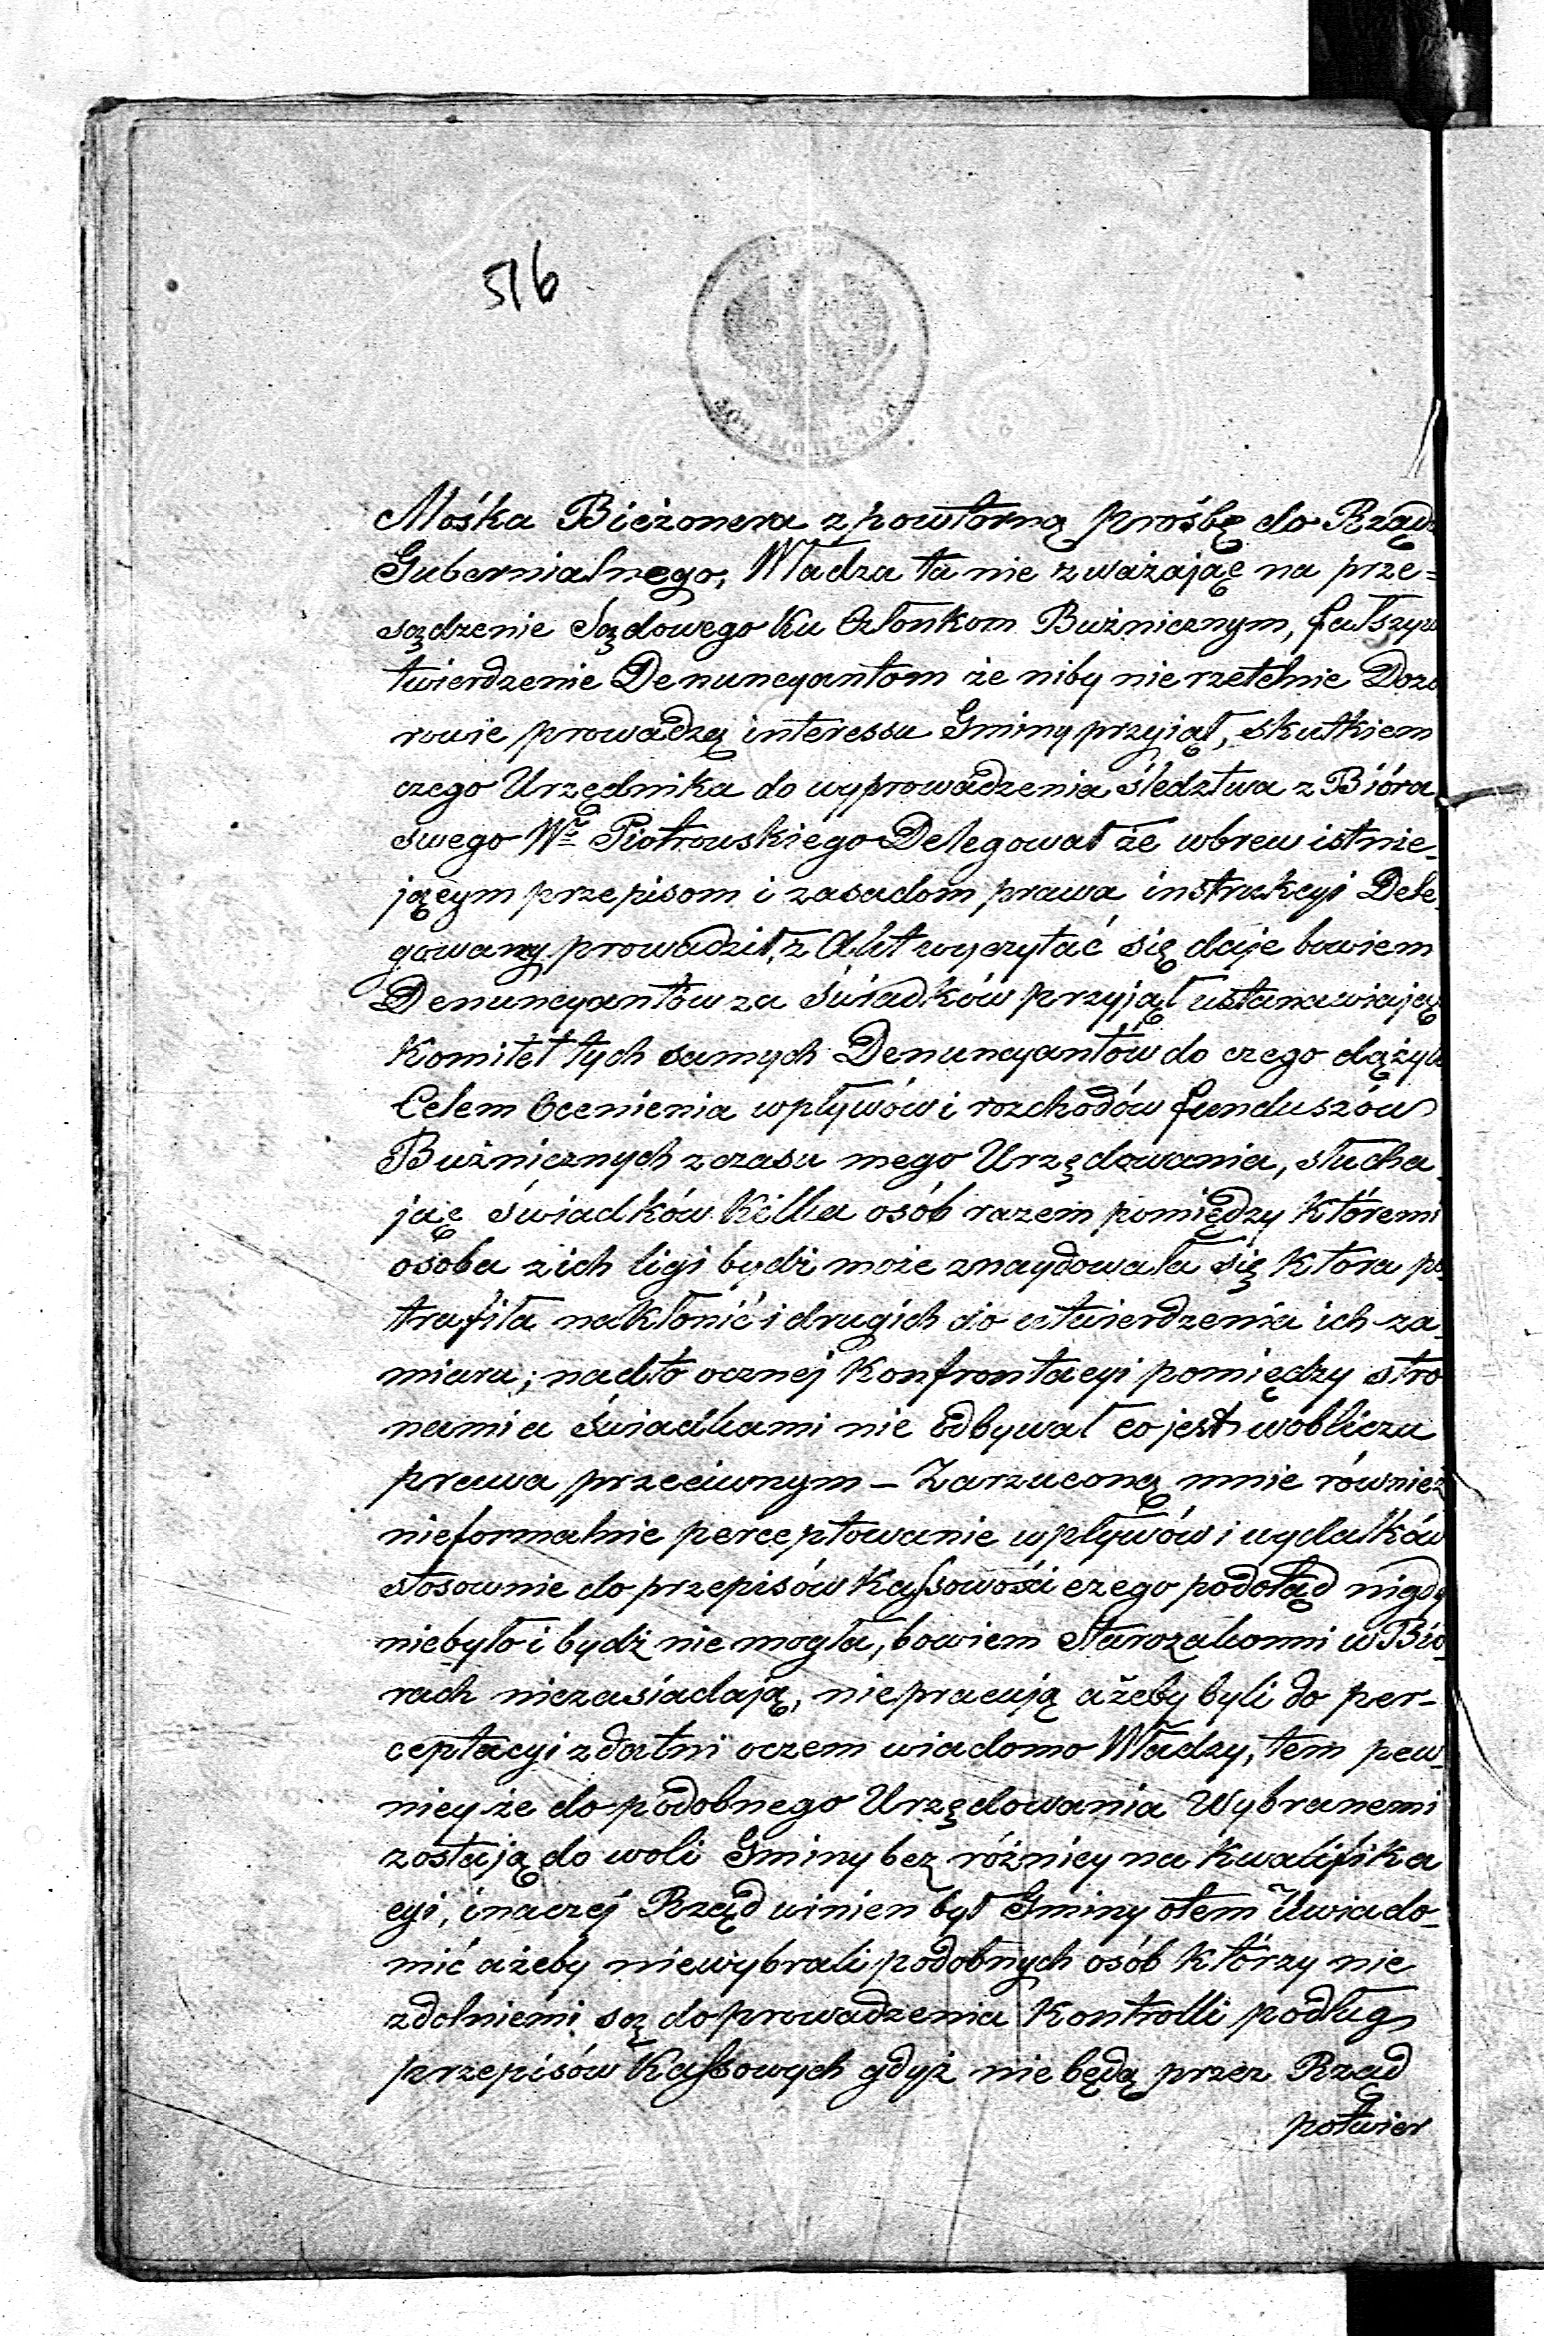 516
Mośka Bieżonera z powtórną prośbę do Rządu
Gubernialnego, Władza ta nie zważając na prze=
sądzenie Sądowego ku Członkom Bużnicznym, fałszyw
twierdzenie Denuncyantom że niby nierzetelnie Dozo
rowie prowadzą interessa Gminy przyiął, skutkiem
czego Urzędnika do wyprowadzenia śledztwa z Bióra
swego Wgo Piotrowskiego Delegował że wbrew istnie-
jącym przepisom i zasadom prawa instrukcyi Dele-
gowany prowadził, z Akt wyczytać się daje bowiem
Denuncyantów za świadków przyjął ustanawiając
Komitet tych samych Denuncyantów do czego dążyli
Celem Ocenienia wpływów i rozchodów funduszów
Bużnicznych z czasu mego Urzędowania, słucha-
jąc świadków Kilka osób razem pomiędzy któremi
osoba z ich ligi bydź może znaydowała się która po
trafiła nakłonić i drugich do utwierdzenia ich za-
miaru; nadto ocznej Konfrontacyi pomiędzy stro
nami a świadkami nie odbywał co jest w obliczu
prawa przeciwnym – Zarzuconą mnie również
nieformalnie perceptowanie wpływów i wydatków
stosownie do przepisów Kassowości czego podotąd nigdy
niebyło i bydź nie mogła, bowiem Starozakonni w Bió-
rach niezasiadają, niepracują ażeby byli do per-
ceptacyi zdatni oczem wiadomo Władzy, tem pew-
niey że do podobnego Urzędowania Wybranemi
zostają do woli Gminy bez różnicy na Kwalifika
cyi, inaczej Rząd winien był Gminy otem Uwiado-
mić ażeby niewybrali podobnych osób którzy nie
zdolniemi są do prowadzenia Kontrolli podług
przepisów Kassowych gdyż nie będą przez Rząd
potwier